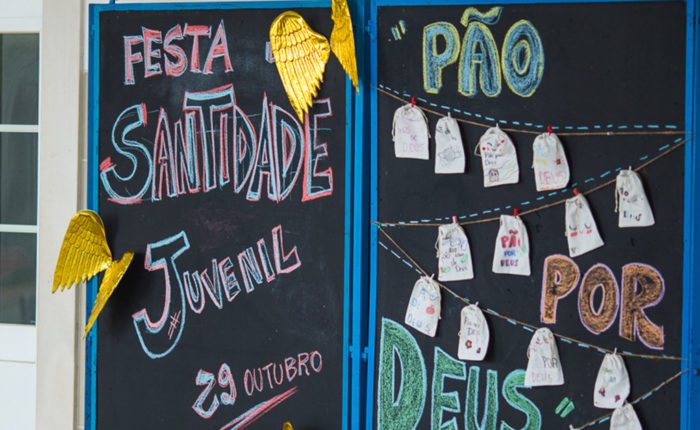 FESTA
SANTIDADE
JUVENIL
29 OUTUBRO
PÃO
POR
DEUS
PÃO
POR
DEUS
POR
DEUS